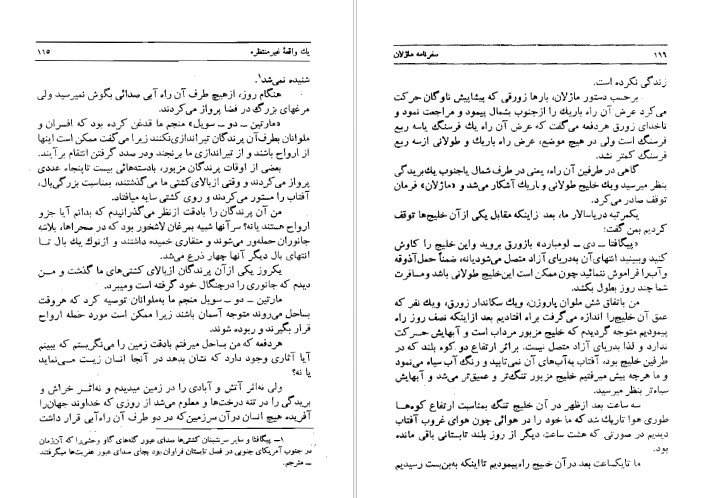 ۱۱۶ سفرنامه ماژلان
زندگی نکرده است.
برحسب دستور ماژلان، بارها زورقی که پیشاپیش ناوگان حرکت
می‌کرد عرض آن راه باریك را ازجنوب بشمال پیمود و مراجعت نمود و
ناخدای زورق هردفعه می‌گفت که عرض آن راه یك فرسنگ یاسه ربع
فرسنگ است ولی در هیچ موضع، عرض راه باریك و طولانی ازسه ربع
فرسنگ کمتر نشد.
گاهی در طرفین آن راه، یعنی در طرف شمال یاجنوب یك‌بریدگی
بنظر میرسید ویك خلیج طولانی و باریك آشکار می‌شد و «ماژلان» فرمان
توقف صادر می‌کرد.
یکمرتبه دریاسالار ما، بعد ازاینکه مقابل یکی ازآن خلیج‌ها توقف
کردیم بمن گفت:
«پیگافتا ــ دی ــ لومبارد» بازورق بروید و این خلیج را کاوش
کنید وببینید انتهای‌آن به‌دریای آزاد متصل می‌شودیانه، ضمناً حمل‌آذوقه
وآب‌را فراموش ننمائید چون ممکن است این‌خلیج طولانی باشد ومسافرت
شما چند روز بطول بکشد.
من باتفاق شش ملوان پاروزن، ویك سکاندار زورق، ویك نفر که
عمق آن خلیج‌را اندازه می‌گرفت براه افتادیم بعد ازاینکه نصف روز راه
پیمودیم متوجه گردیدم که خلیج مزبور مرداب است و آبهایش حرکت
ندارد و لذا بدریای آزاد متصل نیست. براثر ارتفاع دو کوه بلند که در
طرفین خلیج بود، آفتاب به‌آب‌های آن نمی‌تابید و رنگ آب سیاه می‌نمود
و ما هرچه بیش میرفتیم خلیج مزبور تنگ‌تر و عمیق‌تر می‌شد و آبهایش
سیاه‌تر بنظر میرسید.
سه ساعت بعد ازظهر در آن خلیج تنگ بمناسبت ارتفاع کوه‌ها
طوری هوا تاریك شد که ما خود را در هوائی چون هوای غروب آفتاب
دیدیم در صورتی که هشت ساعت دیگر از روز بلند تابستانی باقی مانده
بود.
ما تایکساعت بعد درآن خلیج راه‌پیمودیم تااینکه به‌بن‌بست رسیدیم
یك واقعۀ غیرمنتظره ۱۱۵
شنیده نمی‌شد۱.
هنگام روز، ازهیچ طرف آن راه آبی صدائی بگوش نمیرسید ولی
مرغهای بزرگ در فضا پرواز می‌کردند.
«مارتین ــ دو ــ سویل» منجم ما قدغن کرده بود که افسران و
ملوانان بطرف‌آن پرندگان تیراندازی‌نکنند زیرا می‌گفت ممکن است اینها
از ارواح باشند و از تیراندازی ما برنجند ودر صدد گرفتن انتقام برآیند.
بعضی از اوقات پرندگان مزبور، بادسته‌هائی بیست تاپنجاه عددی
پرواز می‌کردند و وقتی ازبالای کشتی ما می‌گذشتند، بمناسبت بزرگی‌بال،
آفتاب را مستور می‌کردند و روی کشتی سایه میافتاد.
من آن پرندگان را بادقت ازنظر می‌گذرانیدم که بدانم آیا جزو
ارواح هستند یانه؟ سرآنها شبیه بمرغان لاشخور بود که در صحراها، بلاشه
جانوران حمله‌ور می‌شوند و منقاری خمیده داشتند و ازنوك یك بال تا
انتهای بال دیگر آنها چهار ذرع می‌شد.
یکروز یکی از آن پرندگان ازبالای کشتی‌های ما گذشت و مــن
دیدم که جانوری را درچنگال خود گرفته است ومیبرد.
مارتین ــ دو ــ سویل منجم ما به‌ملوانان توصیه کرد که هروقت
بساحل می‌روند متوجه آسمان باشند زیرا ممکن است مورد حمله ارواح
قرار بگیرند و ربوده شوند.
هردفعه که من بساحل میرفتم بادقت زمین را می‌نگریستم که ببینم
آیا آثاری وجود دارد که نشان بدهد در آنجا انسان زیست مــی‌نماید
یا نه؟
ولی نه‌اثر آتش و آبادی را در زمین میدیدم و نه‌اثــر خراش و
بریدگی را در تنه درخت‌ها و معلوم می‌شد از روزی که خداوند جهان‌را
آفریده هیچ انسان درآن سرزمین‌که در دو طرف آن راه‌آبی قرار داشت
۱ــ پیگافتا و سایر سرنشینان کشتی‌ها صدای عبور گله‌های گاو وحشی‌را که آن‌زمان
در جنوب آمریکای جنوبی در فصل تابستان فراوان بود بجای صدای عبور عفریت‌ها میگرفتند
ــ مترجم.